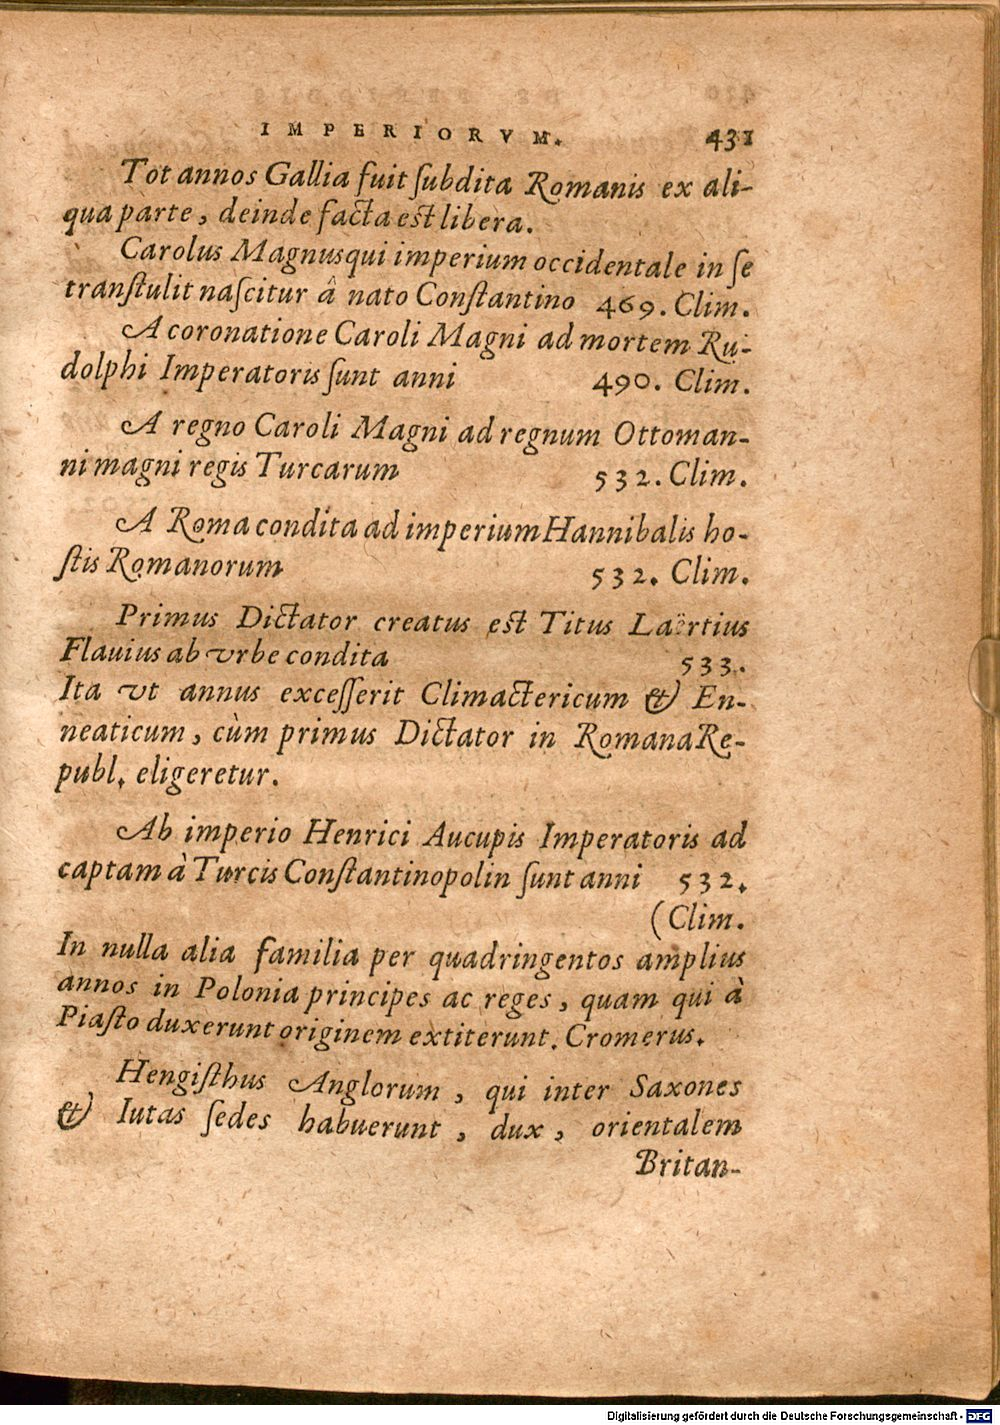 IMPERIORVM. 431
Tot annos Gallia fuit ſubdita Romanis ex ali-
qua parte, deinde facta est libera.
Carolus Magnus qui imperium occidentale in ſe
tranſtulit naſcitur â nato Conſtantino 469. Clim.
A coronatione Caroli Magni ad mortem Ru-
dolphi Imperatoris ſunt anni 490. Clim.
A regno Caroli Magni ad regnum Ottoman-
ni magni regis Turcarum 532. Clim.
A Roma condita ad imperium Hannibalis ho-
ſtis Romanorum 532. Clim.
Primus Dictator creatus est Titus Laërtius
Flauius ab vrbe condita 533.
Ita vt annus exceſſerit Climactericum & En-
neaticum, cùm primus Dictator in Romana Re-
publ. eligeretur.
Ab imperio Henrici Aucupis Imperatoris ad
captam à Turcis Conſtantinopolin ſunt anni 532.
(Clim.
In nulla alia familia per quadringentos amplius
annos in Polonia principes ac reges, quam qui à
Piaſto duxerunt originem extiterunt. Cromerus.
Hengiſthus Anglorum, qui inter Saxones
& Iutas ſedes habuerunt, dux, orientalem
Britan-
Digitalisierung gefördert durch die Deutsche Forschungsgemeinschaft - DFG